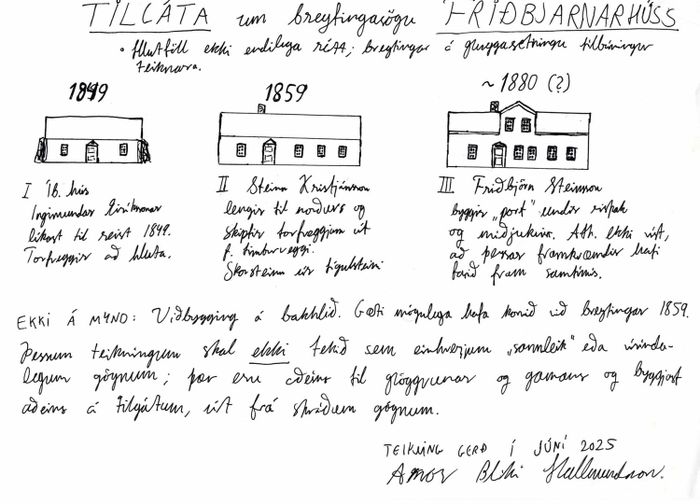 TILGÁTA um breytingasögu FRIÐBJARNARHÚSS
• Hlutföll ekki endilega rétt; breytingar á gluggasetningu tilbúningur
teiknara.
1849
1859
~ 1880 (?)
I Íb. hús
Ingimundar Eiríkssonar
líkast til reist 1849.
Torfveggir að hluta.
II Steinn Kristjánsson
lengir til norðurs og
skiptir torfveggjum út
f. timburveggi.
Skorsteinn úr tígulsteini
III Friðbjörn Steinsson
byggir „port" undir rispak
og miðjukvist. Ath. ekki víst,
að þessar framkvæmdir hafi
farið fram samtímis.
EKKI Á MYND: Viðbygging á bakhlið. Gæti mögulega hafa komið við breytingar 1859.
Þessum teikningum skal ekki tekið sem einhverjum „sannleik" eða vísinda-
legum gögnum; þær eru aðeins til glöggvunar og gamans og byggjast
aðeins á tilgátum, út frá skráðum gögnum.
TEIKNING GERÐ Í JÚNÍ 2025
Arnór Bliki Hallmundsson.